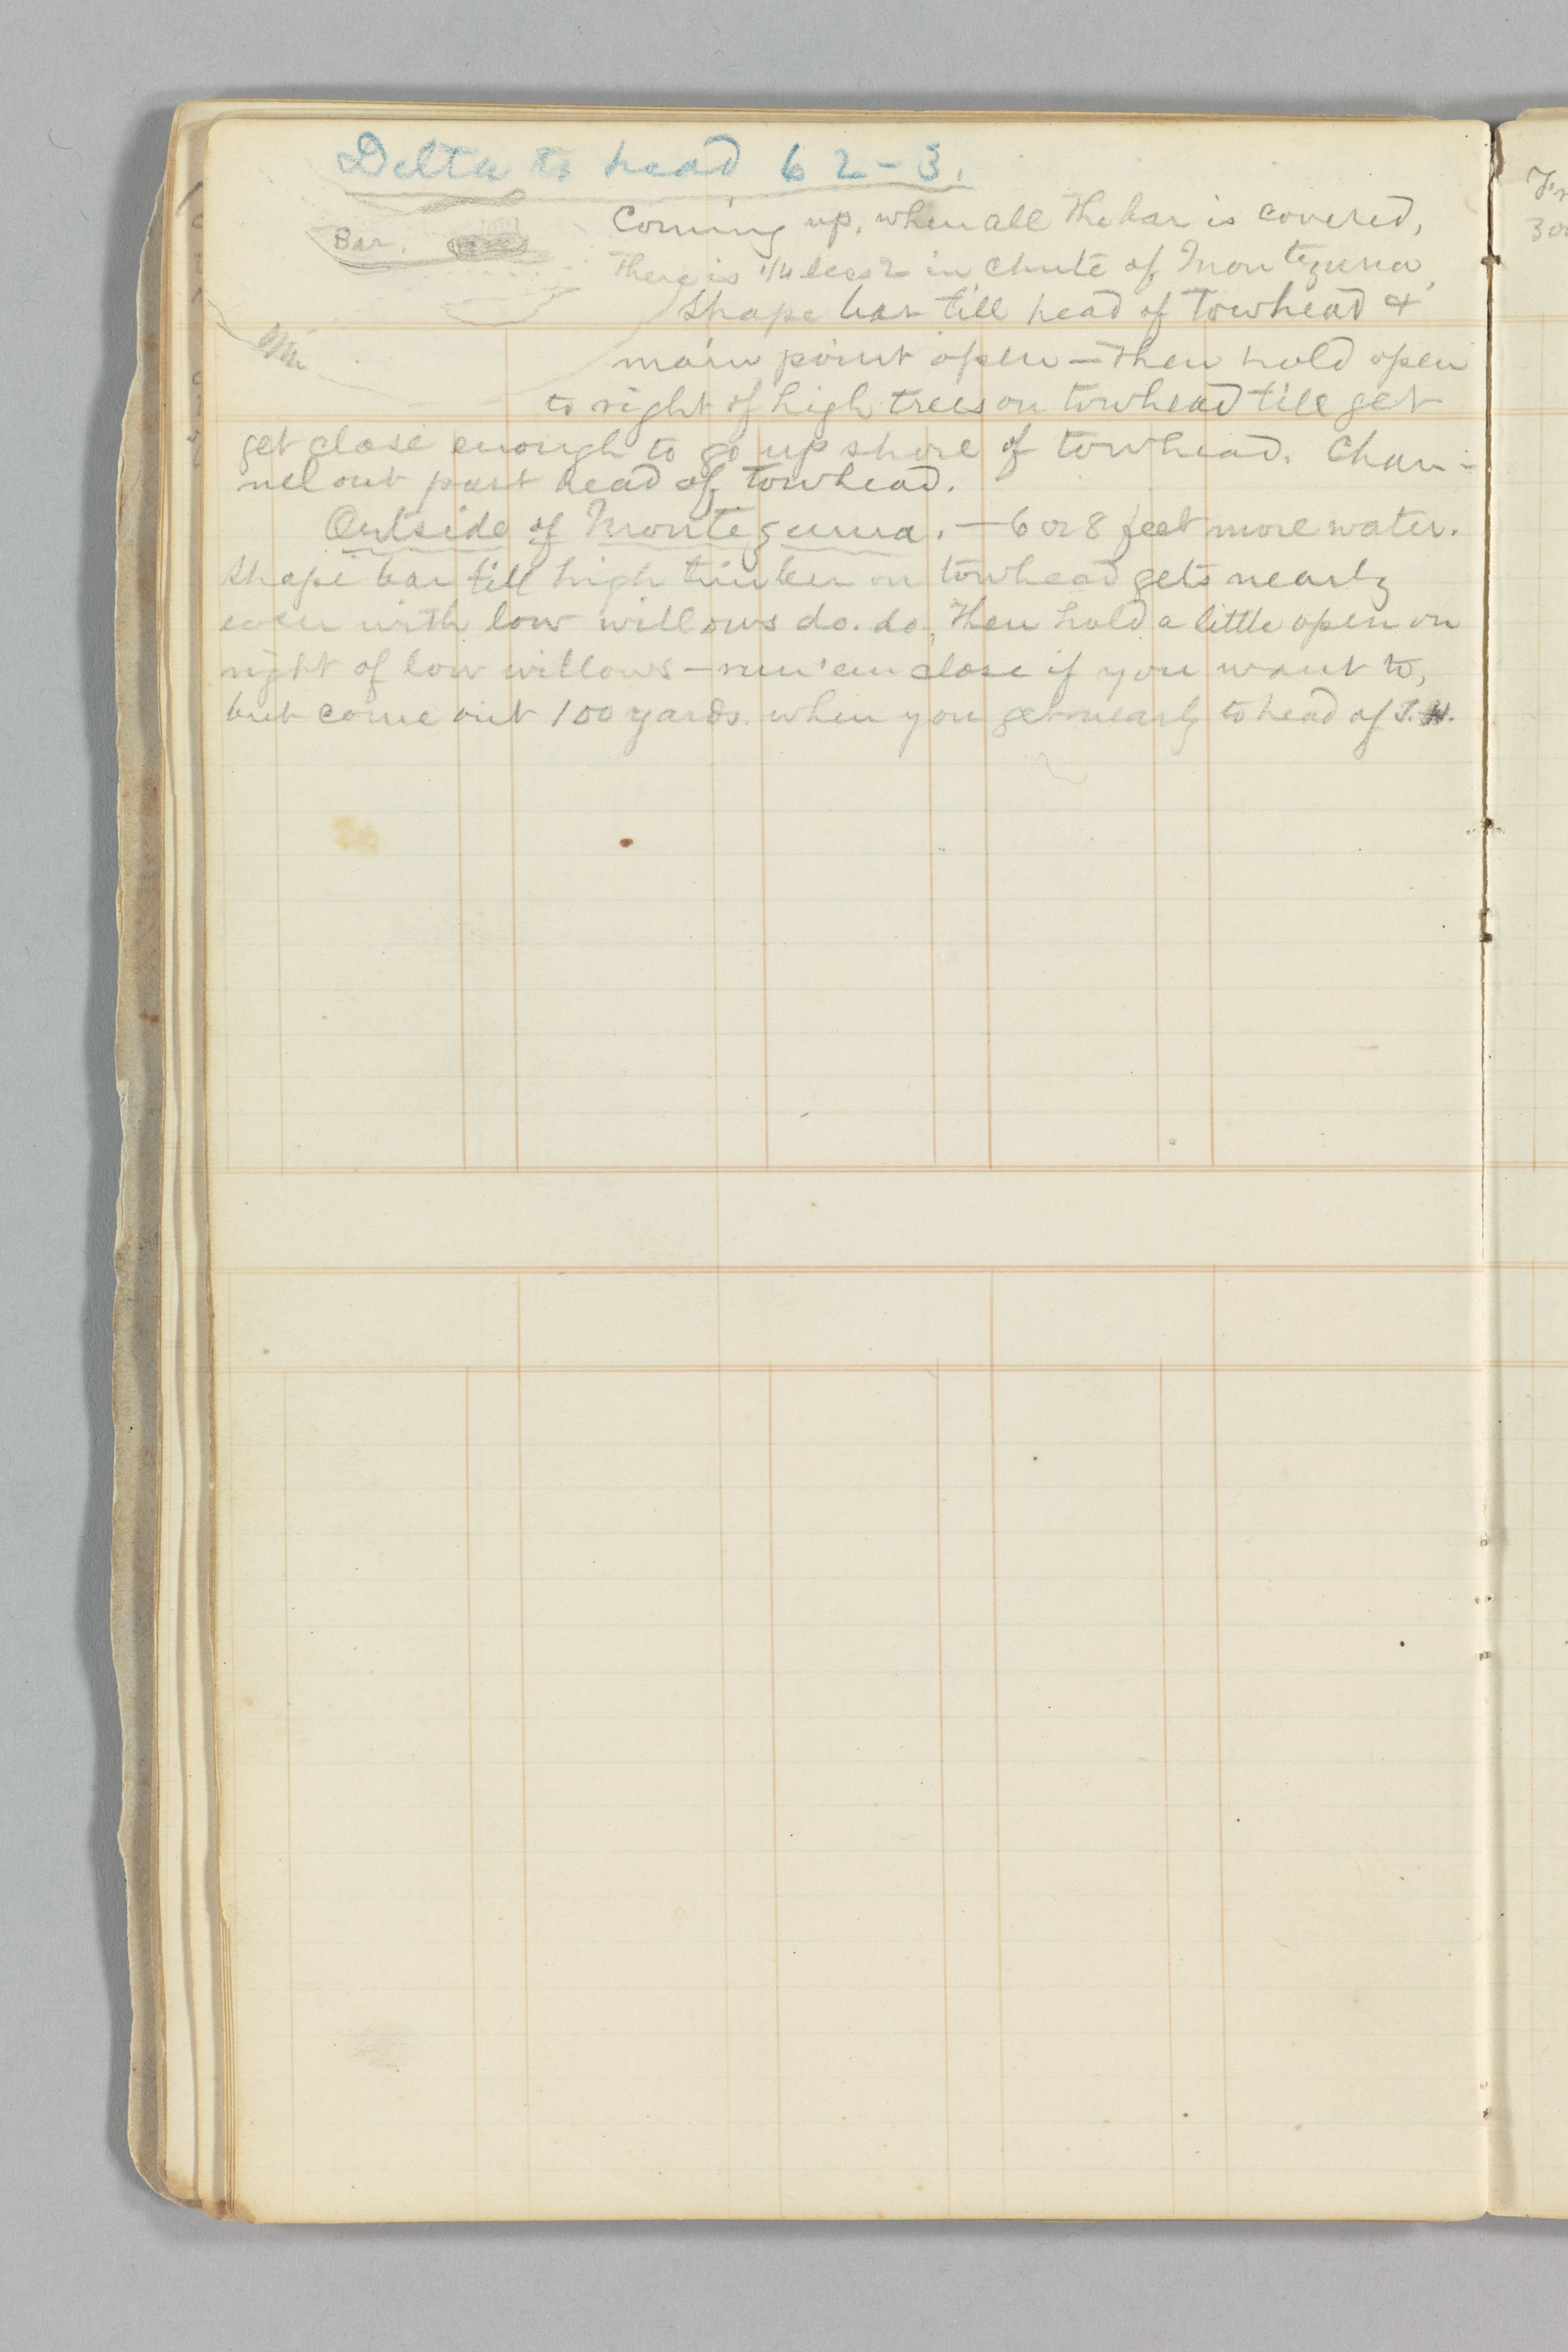 Delta to head 62-3.
Bar.
Coming up, when all the bar is covered,
there is 1/4 less 2 in chute of Montezuma,
Shape bar till head of towhead &
main point open — then hold open
to right of high trees on towhead till get
get close enough to go up shore of towhead. Chan-
nel out past head of towhead.
Outside of Montezuma. — 6 or 8 feet more water.
Shape bar till high timber on towhead gets nearly
even with low willows do. do., then hold a little open on
right of low willows — run 'em close if you want to,
but come out 100 yards when you get nearly to head of T. H.